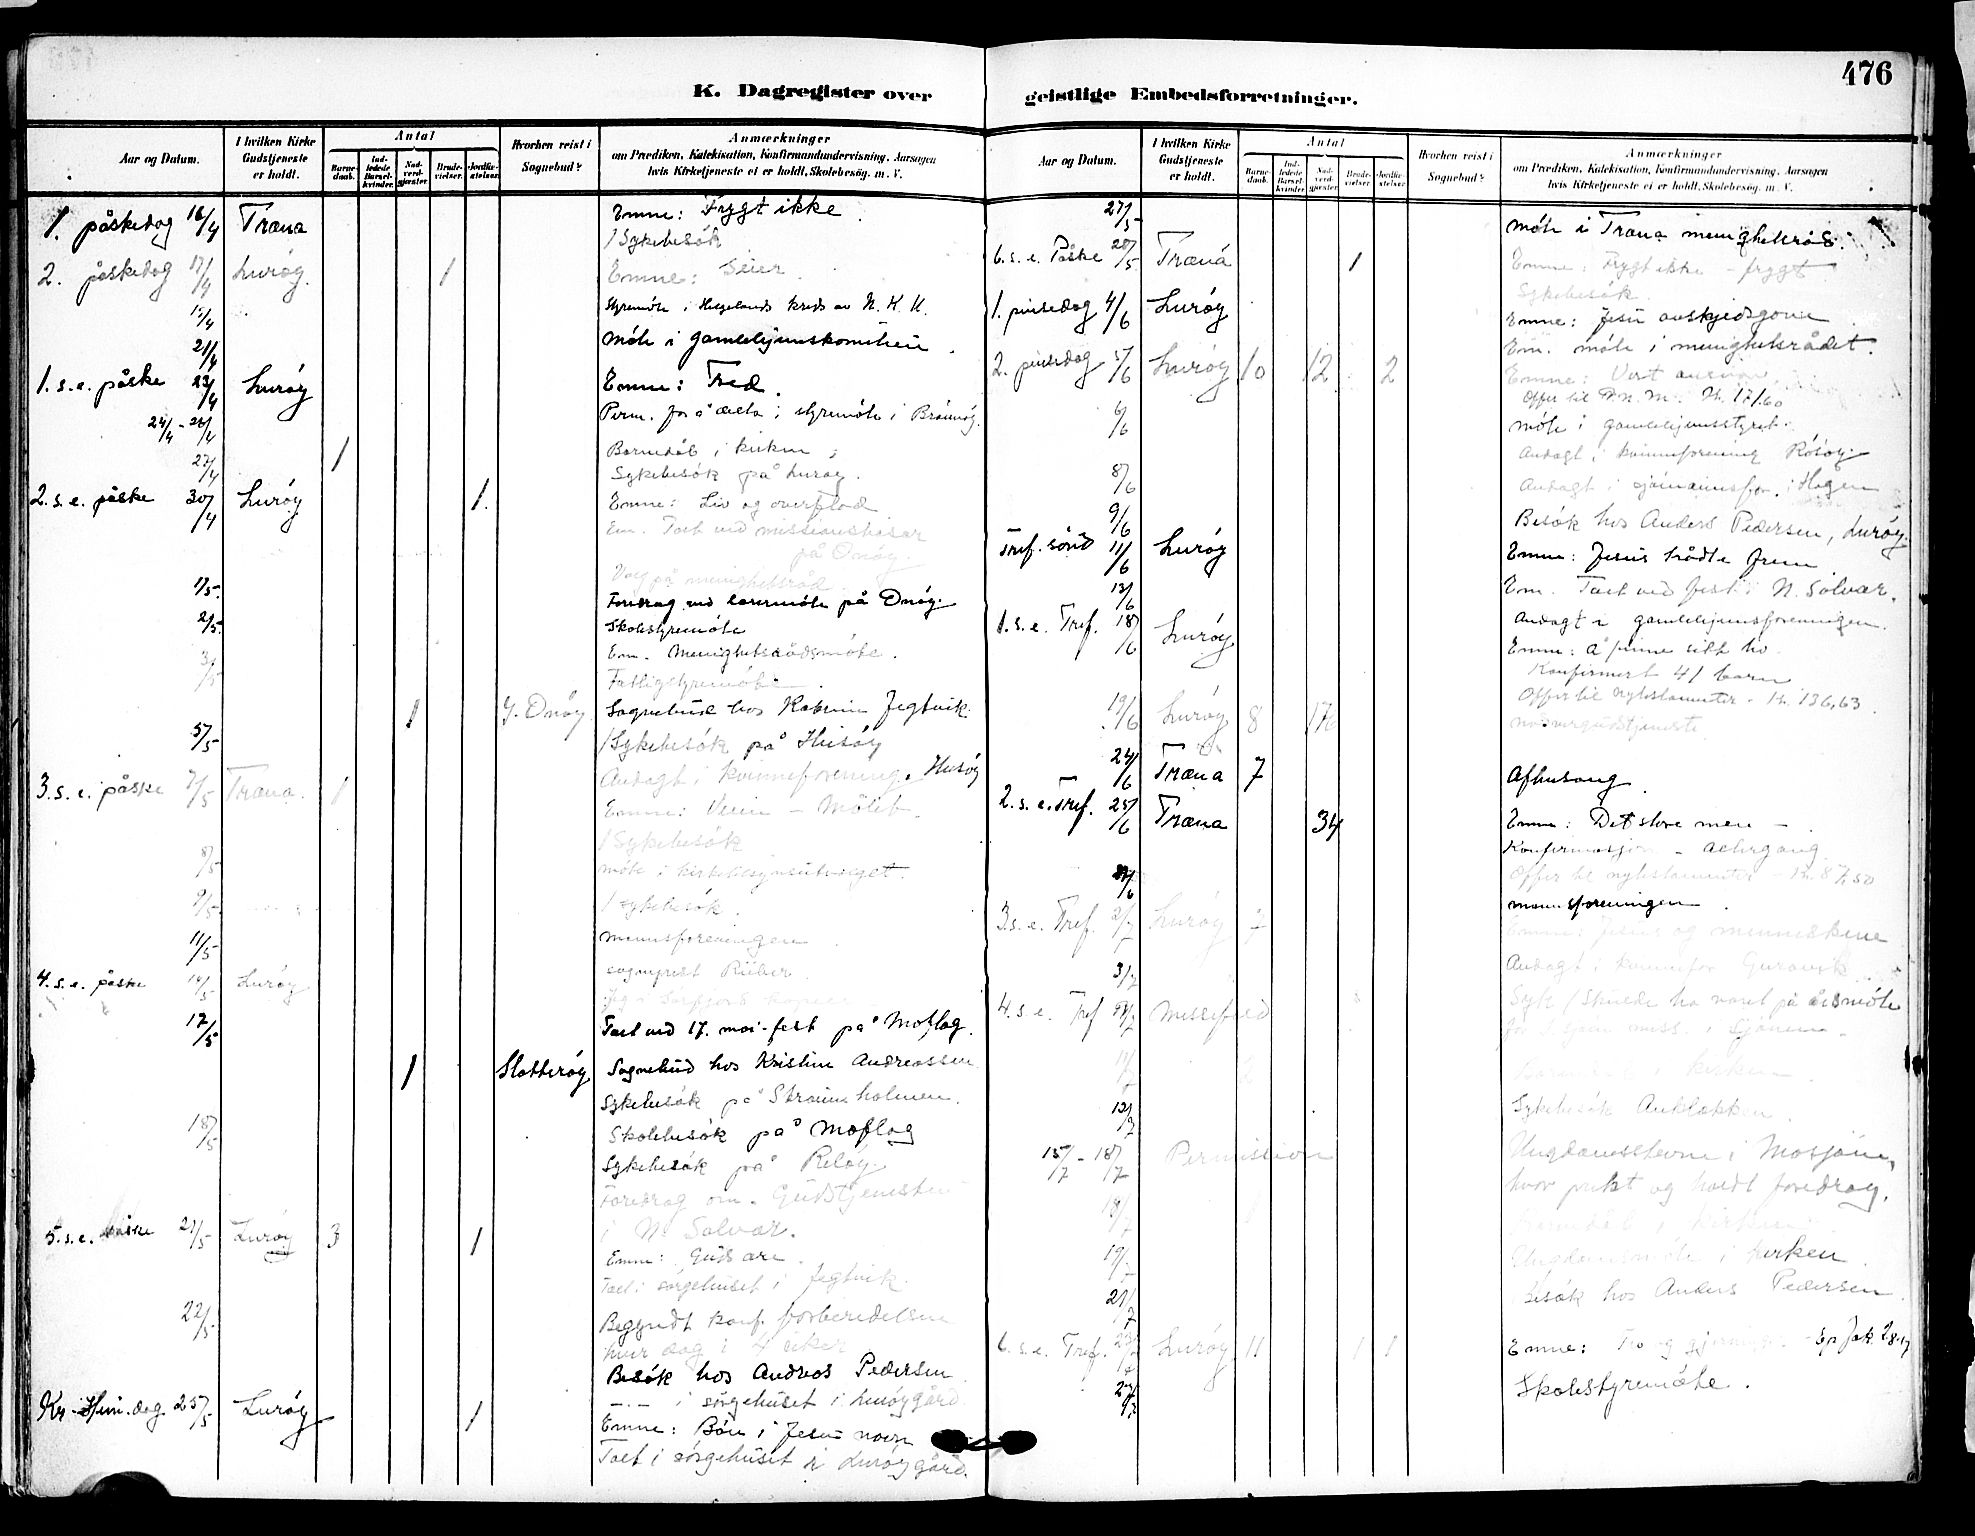 476
K. Dagregister over
Aar og Datum.
I hvilken Kirke Gudstjeneste er holdt.
Antal
Barne-daab.
Ind-ledede Barsel-kvinder.
Nad-verd-gjæster.
Brude-vielser.
Jordfæ-stelser.
Hvorhen reist i Sognebud?
Anmærkninger
om Prædiken, Katekisation, Konfirmandundervisning, Aarsagen
hvis Kirketjeneste ei er holdt, Skolebesøg. m. V.
1. påskedag 16/4 Træna Emne: Frygt ikke.
1 Sykebesök
2. påskedag 17/4 Luröy. 1 Emne: Seier.
19/4 Styremöte i Helgelands kreds av N. K. U.
21/4 Möte i gamlehjemskomiteen.
1. s. e. påske 23/4 Luröy Emne: Fred.
24/4 - 26/4 Perm. for å delta i styremöte i Brönnöy.
27/4 1 Barnedåb i kirken;
Sykebesök på Luröy.
2. s. e. påske 30/4 Luröy 1. Emne: Liv og overflod
Em. Talt ved missionsbasar
på Onöy
Valg på menighetsråd
1/5. Foredrag ved lærermöte på Onöy.
2/5. Skolestyremöte
Em. Menighetsrådsmöte.
3/5 Fattigstyremöte.
1 Y. Onöy Sognebud hos Jegtvik.
5/5 1 Sykebesök på Husöy
Andagt i kvinneforening, Husöy
3. s. e. påske 7/5 Træna. 1 Emne: Veien - Målet.
1 Sykebesök
8/5 möte i
9/5 1 sykebesök.
11/5 mannsforeningen.
4. s. e. påske 14/5 Luröy sogneprest Rüber
17/5 Talt ved 17. mai-fest på Moflag.
1 Slotteröy Sognebud hos Kristine Andreassen
Sykebesök på holmen.
18/5 Skolebesök på Moflag
Sykebesök på Relöy.
Foredrag om Gudstjenesten
i N. Solvær.
5. s. e. påske 21/5 Luröy 3 1 Emne: Guds ære.
Talt i sörgehuset i Jegtvik.
22/5 Begyndt konf. forberedelsen
hver dag i 4 uker
Besök hos Andreas Pedersen
-.- i sörgehuset i Luröygård.
Kr. Him. dag 25/5 Luröy 1 Emne: Bön i Jesu navn
Talt i sörgehuset i Luröygård.
geistlige Embedsforretninger.
Aar og Datum.
I hvilken Kirke Gudstjeneste er holdt.
Antal
Barne-daab.
Ind-ledede Barsel-kvinder.
Nad-verd-gjæster.
Brude-vielser.
Jordfæ-stelser.
Hvorhen reist i Sognebud?
Anmærkninger
om Prædiken, Katekisation, Konfirmandundervisning, Aarsagen
hvis Kirketjeneste ei er holdt, Skolebesøg. m. V.
27/5 möte i Træna menighetsråd.
6. s. e. Påske 28/5 Træna 1 Emne: Frygt ikke - frygt
Sykebesök.
1. pinsedag 4/6 Luröy Emne: Jesu avskjedsgave.
Em. möte i menighetsrådet.
2. pinsedag 5/6 Luröy 10 12 2 Emne: Vort ansvar.
Offer til N. M. Kr. 17,60
6/6 möte i gamlehjemsstyret.
Andagt i kvinneforening Rösöy
8/6 Andagt i sjömannsfor. i Hagen
9/6 Besök hos Anders Pedersen, Luröy.
Tref. sönd 11/6 Luröy Emne: Jesus trådte frem
Em. Talt ved fest i N. Solvær.
13/6 Andagt i gamlehjemsforeningen.
1. s. e. Tref. 18/6 Luröy Emne: Å finne sitt liv.
Konfirmert 41 barn
Offer til nytestamenter - Kr. 136,63.
19/6 Luröy 8 176
24/6 Træna 7 Afthusang.
2. s. e. Tref. 25/6 Træna 34 Emne: Det store men -.
Konfirmasjon - altergang
Offer til nytestamenter - Kr. 87,50
/6 mannsforeningen.
3. s. e. Tref. 2/7 Luröy 7 Emne: Jesus og menneskene
3/7 Andagt i kvinnefor.
4. s. e. Tref 9/7 messefald på årsmöte
for miss. i
11/7 2 Barnedåb i kirken
12/7 Sykebesök
15/7 - 18/7 Permission Ungdomsstevne i Mosjöen,
hvor jeg og holdt foredrag.
18/7 1 Barnedåb i kirken
19/7 Ungdomsmöte i kirken
21/7 Besök hos Anders Pedersen
6. s. e. Tref. 23/7 Luröy 11 1 1 Emne: Tro og gjerninger - Ep. Jak. 2
2/7 Skolestyremöte.